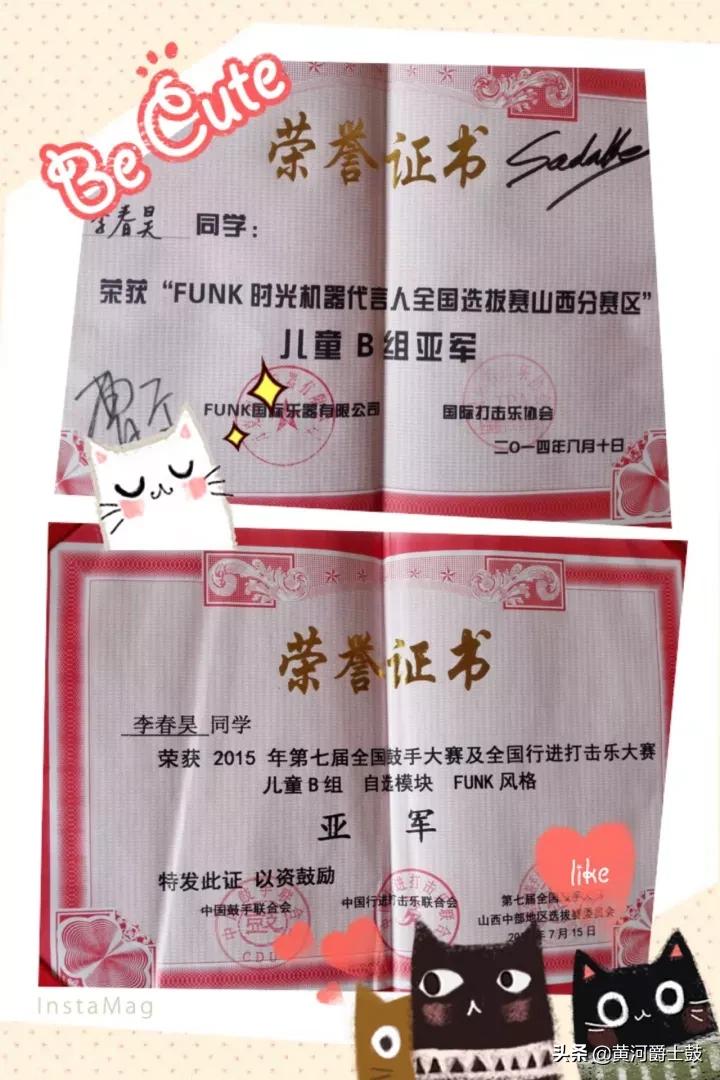 Be Cute
荣誉证书
李春昊 同学：
荣获“FUNK 时光机器代言人全国选拔赛山西分赛区”
儿童 B 组亚军
FUNK国际乐器有限公司 国际打击乐协会
二〇一四年八月十日
荣誉证书
李春昊 同学
荣获 2015 年第七届全国鼓手大赛及全国行进打击乐大赛
儿童 B 组 自选模块 FUNK 风格
亚 军
特发此证 以资鼓励
like
中国鼓手联合会 中国行进打击乐联合会 第七届全国
山西中部地区选拔赛委员会
年 7 月 15 日
CDU
InstaMag
头条 @黄河爵士鼓